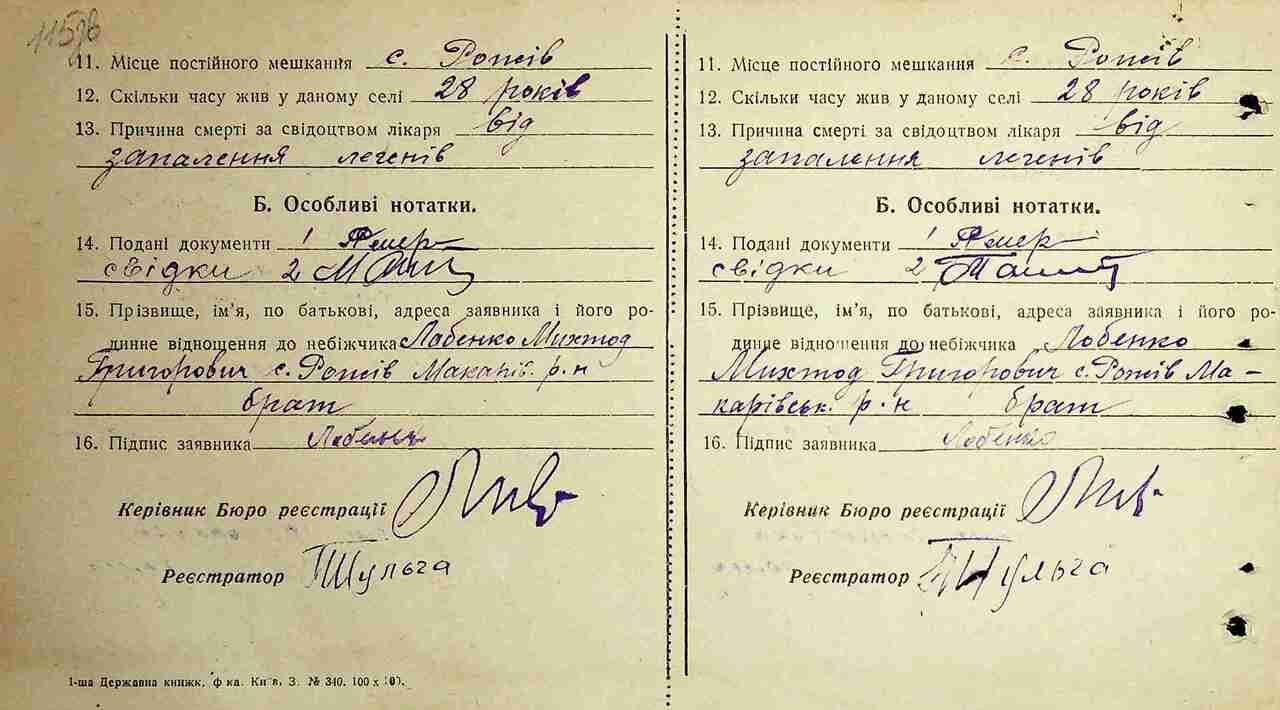 115зв
11. Місце постійного мешкання с. Рожів
12. Скільки часу жив у даному селі 28 років
13. Причина смерті за свідоцтвом лікаря від
запалення легенів
Б. Особливі нотатки.
14. Подані документи 1
свідки 2
15. Прізвище, ім'я, по батькові, адреса заявника і його ро-
динне відношення до небіжчика Лобенко Михтод
Григорович с. Рожів Макарів. р-н
брат
16. Підпис заявника Лобенко
Керівник Бюро реєстрації
Реєстратор Шульга
1-ша Державна книжк. ф-ка. Київ, З. № 340. 100 x 100.
11. Місце постійного мешкання с. Рожів
12. Скільки часу жив у даному селі 28 років
13. Причина смерті за свідоцтвом лікаря від
запалення легенів
Б. Особливі нотатки.
14. Подані документи 1
свідки 2
15. Прізвище, ім'я, по батькові, адреса заявника і його ро-
динне відношення до небіжчика Лобенко
Михтод Григорович с. Рожів Ма-
карівськ. р-н брат
16. Підпис заявника Лобенко
Керівник Бюро реєстрації
Реєстратор Шульга